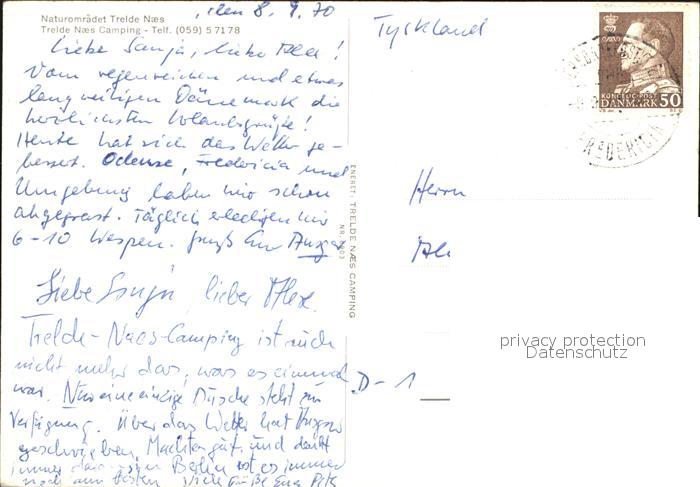 den 8. 9. 70
Naturområdet Trelde Næs
Trelde Næs Camping - Telf. (059) 57178
Liebe Sonja, lieber Alex!
Vom regenreichen und etwas
langweiligen Dänemark die
herzlichsten Urlaubsgrüße!
Heute hat sich das Wetter ge-
bessert. Odense, Fredericia und
Umgebung haben wir schon
abgegrast. Täglich erledigen wir
6-10 Wespen. Gruß Euer
Liebe Sonja, lieber Alex.
Trelde-Naes-Camping ist auch
nicht mehr das, was es einmal
war. Nur eine einzige Dusche steht zur
Verfügung. Über das Wetter hat
geschrieben. Macht es gut und denkt
immer daran, in Berlin ist es immer
noch am besten. Viele Grüße Eure
ENERET: TRELDE NÆS CAMPING
Tyskland
KONGELIG POST
DANMARK 50
FREDERICIA
Herrn
D-1
privacy protection
Datenschutz